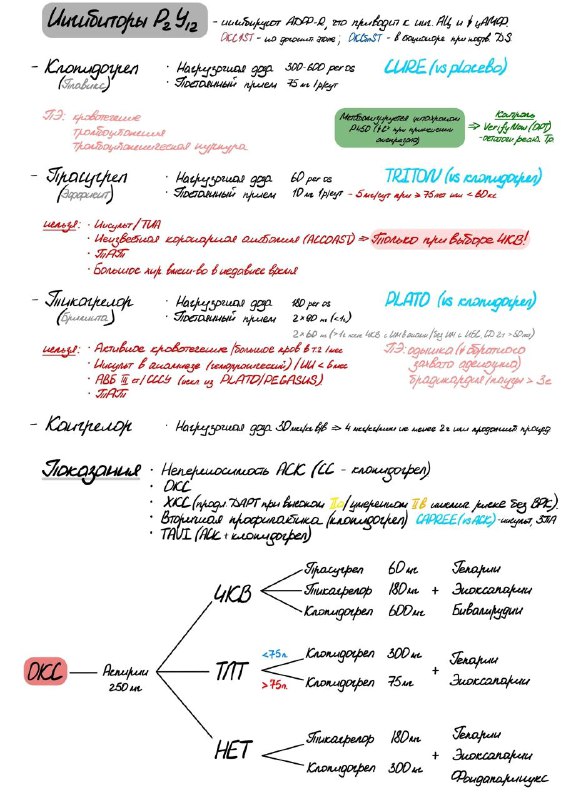 Ингибиторы P2Y12 - ингибируют АДФ-R, что приводит к инг. АЦ и ↑ цАМФ.
ОКСПST - на догосп. этапе; ОКСбпST - в стационаре при подтв. DS.
- Клопидогрел · Нагрузочная доза 300-600 per os CURE (vs placebo)
(Плавикс) · Постоянный прием 75 мг 1р/сут
ПЭ: кровотечение
тромбоцитопения
тромбоцитопеническая пурпура
Метаболизируется цитохромом P450 при применении омепразола) ⇒ Контроль
Verify Now
- Прасугрел · Нагрузочная доза 60 per os TRITON (vs клопидогрел)
(Эффиент) · Постоянный прием 10 мг 1р/сут - 5 мг/сут при ≥ 75 лет или < 60 кг
нельзя: · Инсульт/ТИА
· Неизвестная коронарная анатомия (ACCOAST) ⇒ Только при выборе ЧКВ!
· ПАП
· Большое хир вмеш-во в недавнее время
- Тикагрелор · Нагрузочная доза 180 per os PLATO (vs клопидогрел)
(Брилинта) · Постоянный прием 2×90 м (<1г)
нельзя: · Активное кровотечение /большое кров в т.ч /мес
· Инсульт в анамнезе (геморрагический) / ИИ < 6 мес
· АВБ III ст/СССУ (искл из PLATO/PEGASUS)
· ПАП
ПЭ: одышка (↑ обратного
захвата аденозина)
брадикардия (паузы > 3с
- Кангрелор · Нагрузочная доза 30 мкг/кг В/В ⇒ 4 мкг/кг/мин не менее 2ч или
Показания · Непереносимость АСК (СС - клопидогрел)
· ОКС
· ХКС (продл. DAPT при высоком IIa/умеренном IIb ишемич риске без ВРК).
· Вторичная профилактика (клопидогрел) CAPREE (vs АСК) - инсульт, ЗПА
· TAVI (АСК + клопидогрел)
ОКС
Аспирин
250 мг
ЧКВ
Прасугрел 60 мг
Тикагрелор 180 мг
Клопидогрел 600 мг
+
Гепарин
Эноксапарин
Бивалирудин
ТЛТ
<75 л. Клопидогрел 300 мг
>75 л. Клопидогрел 75 мг
+
Гепарин
Эноксапарин
НЕТ
Тикагрелор 180 мг
Клопидогрел 300 мг
+
Гепарин
Эноксапарин
Фондапаринукс